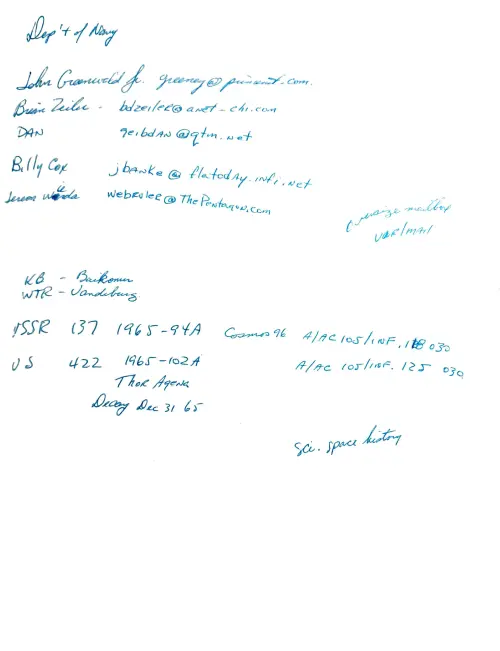 Dep't of Navy
John Greenwald Jr. greeney@primenet.com.
Brian Zeiler - bdzeiler@anet-chi.com
DAN geibdAN@qtm.net
Billy Cox jbanke@flatoday.infi.net
webruler@ThePentagon.com
mailbox
VAR/MAIL
KB - Baikonur
WTR - Vandeburg
USSR 137 1965-94A Cosmos 96 A/AC 105/INF. 118 030
US 422 1965-102A A/AC 105/INF. 125 030
Thor Agena
Decay Dec 31 65
sci. space history